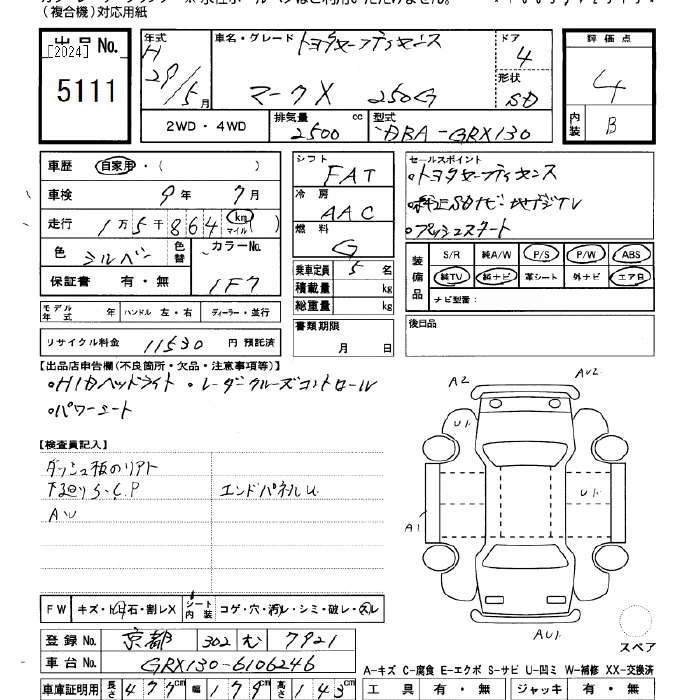 (複合機)対応用紙
出品No. 年式 車名・グレード トヨタセーフティセンス ドア 評価点
[2024] H 4
5111 29/5月 マークX 250G 形状 SD 4
2WD・4WD 排気量 2500 cc 型式 DBA-GRX130 内装 B
車歴 自家用・( ) シフト FAT セールスポイント
・トヨタセーフティセンス
車検 9年 7月 冷房 AAC ・純正SDナビ 地デジTV
走行 1万5千864 km マイル 燃料 G ・プッシュスタート
色 シルバー 色替 カラーNo. 1F7
保証書 有・無
乗車定員 5名 装備品 S/R 純A/W P/S P/W ABS
積載量 kg 純TV 純ナビ 革シート 外ナビ エアB
総重量 kg ナビ型番:
モデル年式 年 ハンドル 左・右 ディーラー・並行 書類期限 月 日 後日品
リサイクル料金 11530 円 預託済
【出品店申告欄(不良箇所・欠品・注意事項等)】
・HIDヘッドライト ・レーダークルーズコントロール
・パワーシート
A2 AU2
U1
【検査員記入】
ダッシュ板のリアト
下回りS・C.P エンドパネルU
AU
U1
A1
AU1
FW キズ・飛石・割レX シート内装 コゲ・穴・汚レ・シミ・破レ・スレ
登録No. 京都 302 む 7921
スペア
車台No. GRX130-6106246
A-キズ C-腐食 E-エクボ S-サビ U-凹ミ W-補修 XX-交換済
車庫証明用 長さ 477cm 幅 179cm 高さ 143cm 工具 有・無 ジャッキ 有・無